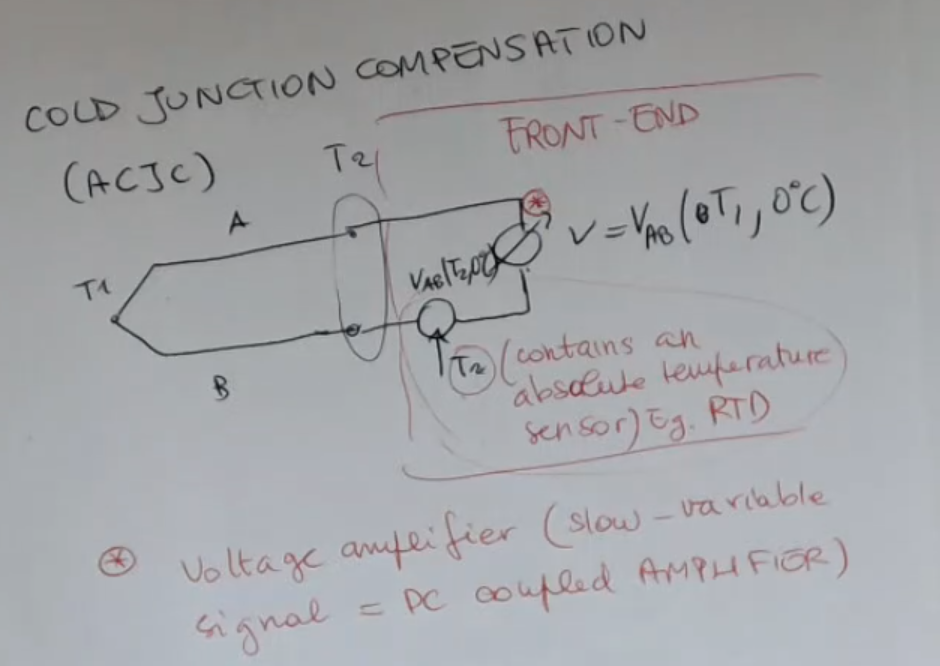 COLD JUNCTION COMPENSATION
(ACJC)
T2
FRONT-END
A
*
V = VAB (θT1, 0°C)
T1
VAB(T2,0°C)
B
T2 (contains an
absolute temperature
sensor) Eg. RTD
* Voltage amplifier (slow-variable
signal = DC coupled AMPLIFIER)